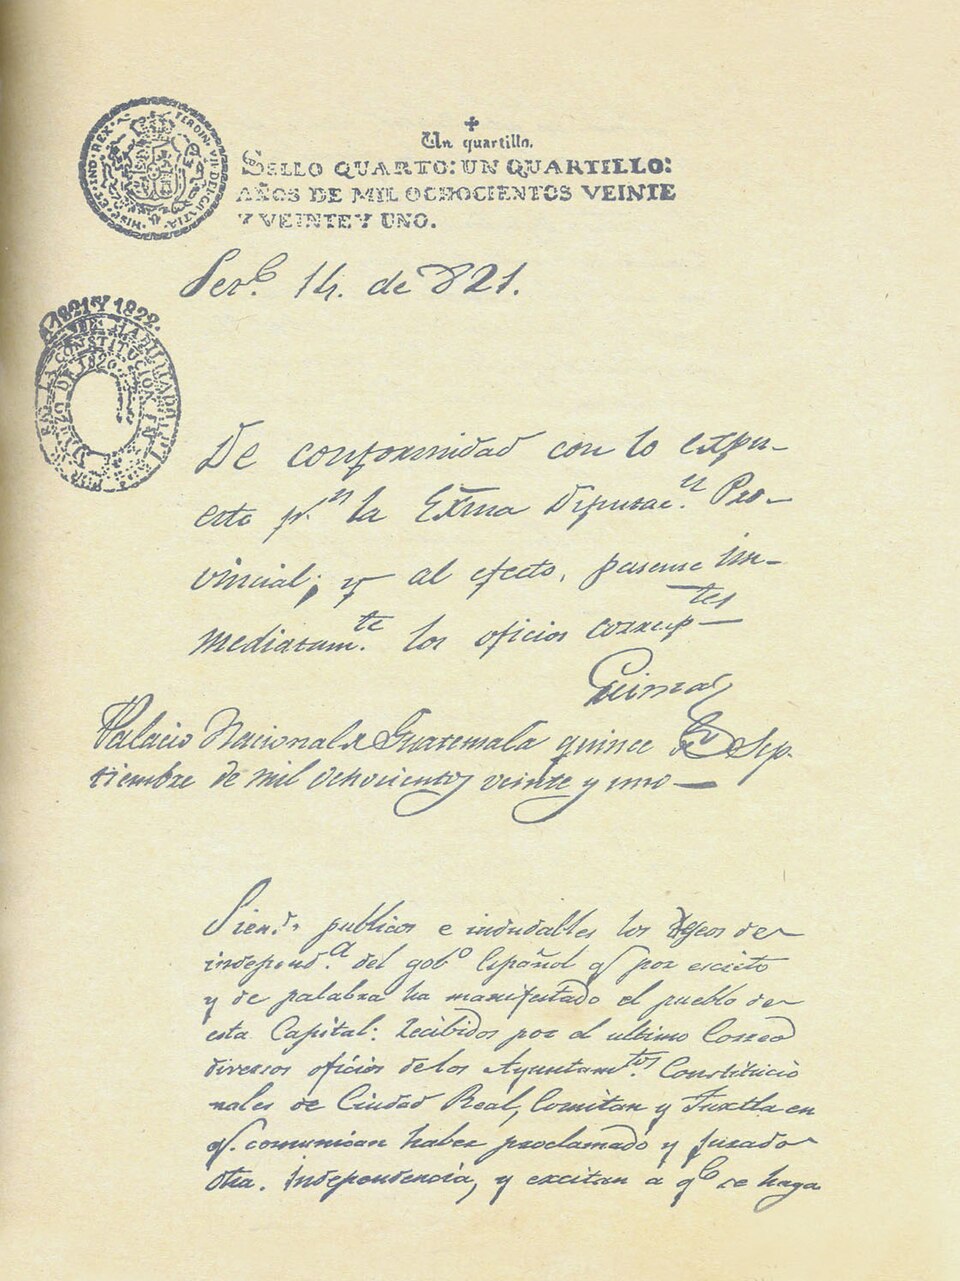 HISP. ET IND. REX. FERDIN. VII. DEI GRATIA.
Un quartillo.
SELLO QUARTO: UN QUARTILLO:
AÑOS DE MIL OCHOCIENTOS VEINTE
Y VEINTE Y UNO.
Ser.e 14. de 821.
1821 Y 1822.
HABILITADO
LA CONSTITUCION
MARZO DE 1820.
De conformidad con lo expu-
esto p.r la Exma Diputac.n Pro-
vincial; y al efecto, pasense in-
mediatam.te los oficios corresp-tes
Palacio Nacional de Guatemala quince de Sep-
tiembre de mil ochocientos veinte y uno—
Siend.o publicos e indudables los deseos de
independ.a del gob.o Español q. por escrito
y de palabra ha manifestado el pueblo de
esta Capital: recibidos por el ultimo Correo
diversos oficios de los Ayuntam.tos Constitucio
nales de Ciudad Real, Comitan y Tuxtla en
q. comunican haber proclamado y jurado
dha. Independencia, y excitan a q.e se haga